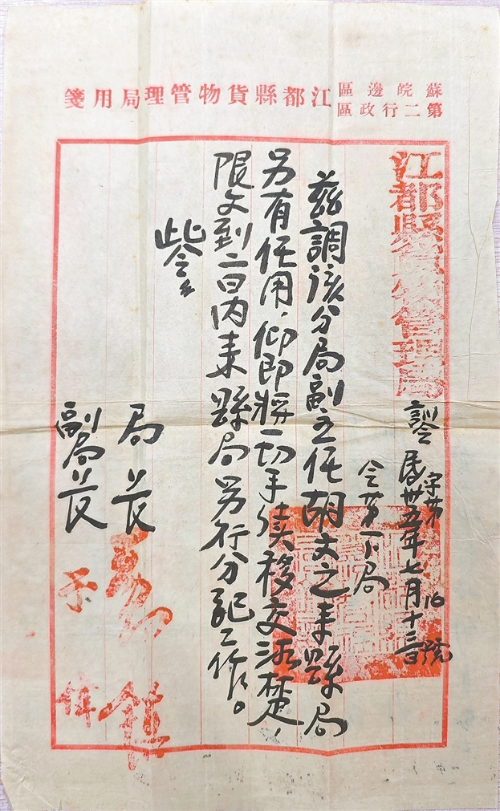 蘇皖邊區
第二行政區
江都縣貨物管理局用箋
江都縣貨物管理局
訓令
字第16號
民卅五年七月十三日
令第一分局
茲調該分局副主任胡文之來縣局
另有任用,仰即將一切手續移交清楚,
限文到二日內来縣局另行分配工作。
此令
局长
副局长